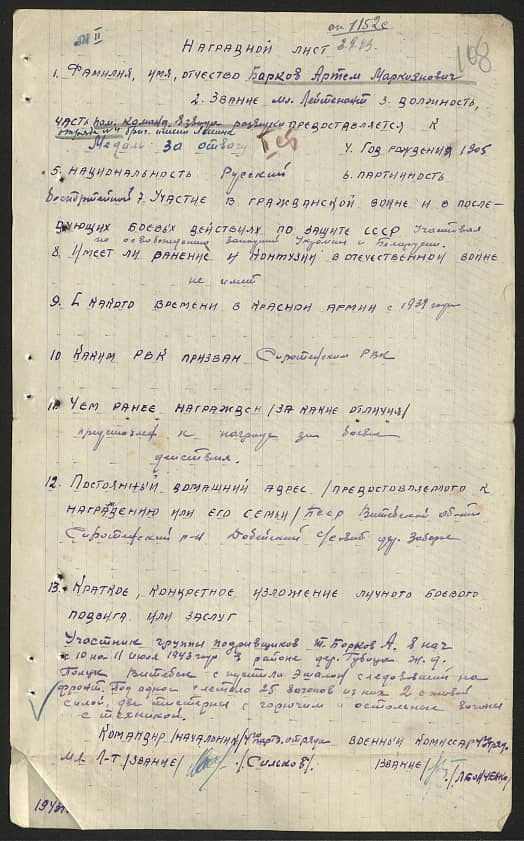 оп 1152с
II
29.43.
168
Наградной лист
1. Фамилия, имя, отчество Барков Артем Маркоянович
2. Звание мл. Лейтенант 3. должность,
часть пом. команд. взвода разведки предоставляется к
отряда №4 бриг. имени Ленина
Медаль за отвагу
4. Год рождения 1905
5. национальность Русский 6. партийность
беспартейнов 7. Участие в гражданской войне и в после-
дующих боевых действиях по защите СССР Участвовал
по освобождению западной Украины и Беларусии.
8. Имеет ли ранение и контузии в отечественной войне
не имеет
9. С какого времени в Красной армии с 1939 года
10 Каким РВК призван Сиротенским РВК
11. Чем ранее награжден /за какие отличия/
представлен к награде за боевые
действия.
12. Постоянный домашний адрес /предоставляемого к
награждению или его семьи/ БССР Витебской области
Сиротенский р-н Добейский с/совет дер. Заборье
13. Краткое, конкретное изложение личного боевого
подвига или заслуг
Участник группы подрывщиков т. Борков А. в ночь
с 10 на 11 июля 1943 году в районе дер. ж. д.
Полоцк Витебск спустили эшалон следовавший на
фронт. Под откос слетело 25 вагонов из них 2 с живой
силой, две цистерны с горючим и остольные вагоны
с техникой.
Командир /начальник/ 4го парт. отряда военный комиссар 4го отряд.
мл. Л-т /звание/ /Сильков/. звание/ /Леонченко/
1943г.